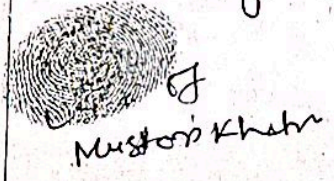 of
Mustari Khatun